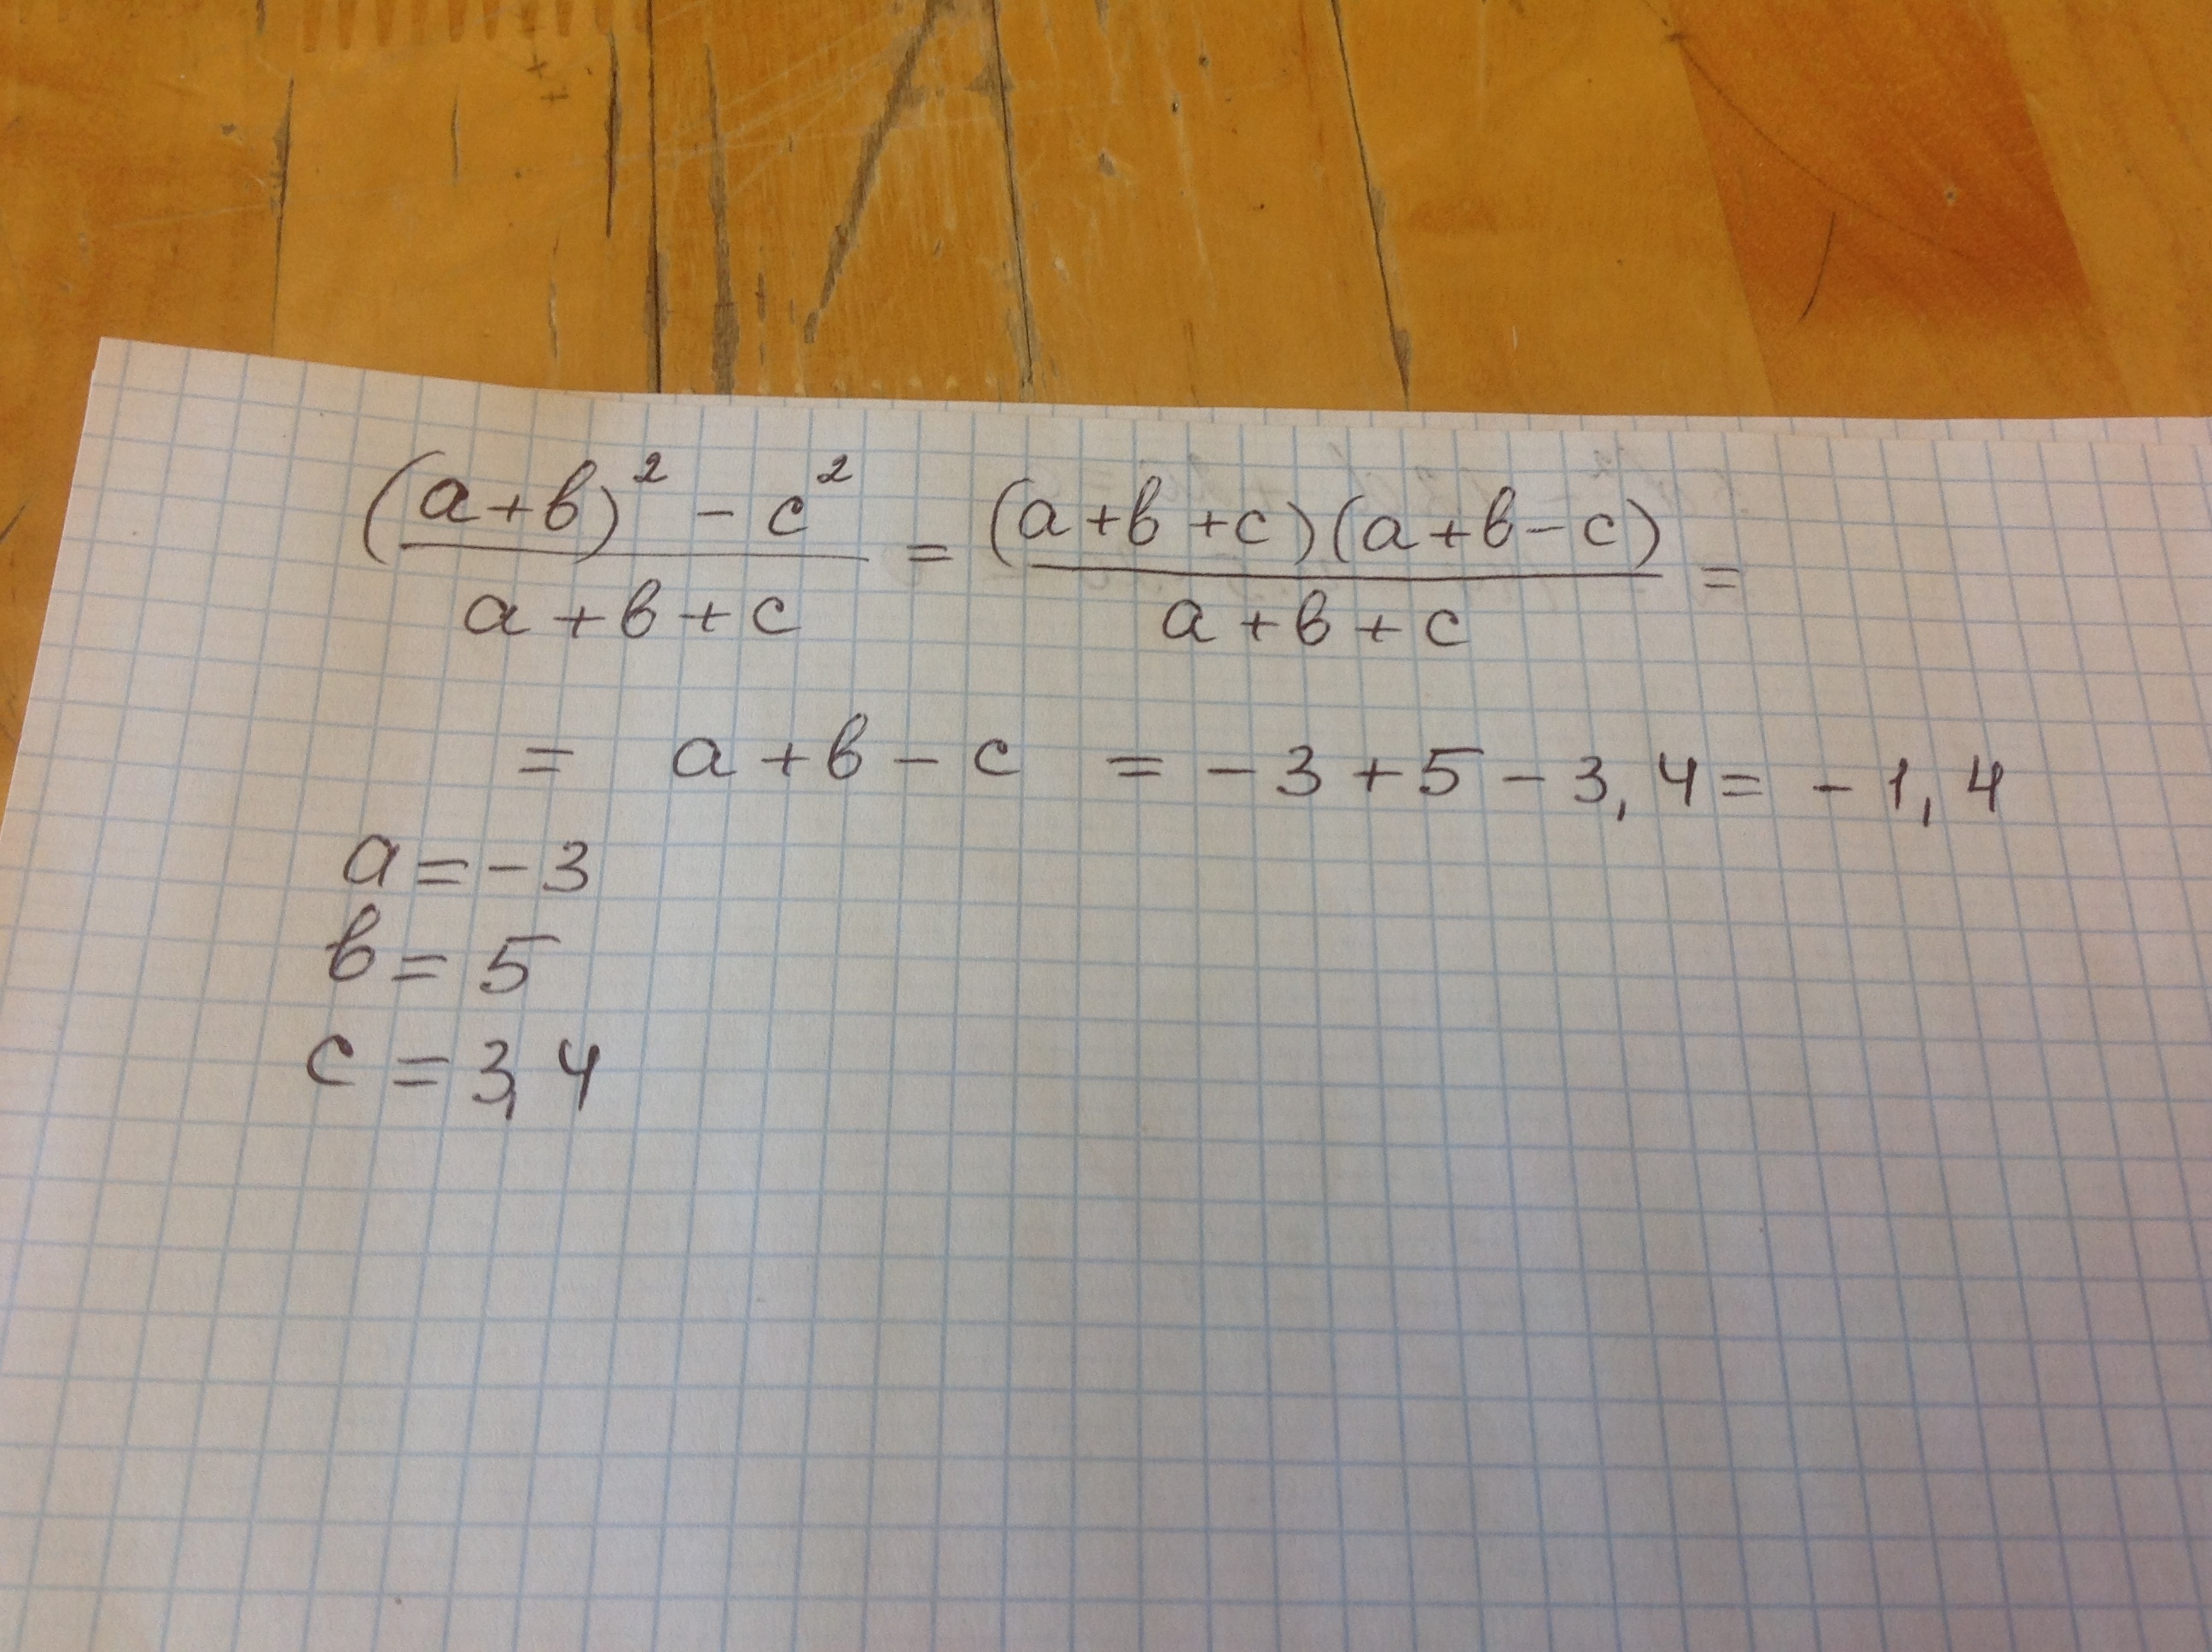 (a+b)² - c² / a+b+c = (a+b+c)(a+b-c) / a+b+c =
= a+b-c = -3+5-3,4 = -1,4
a = -3
b = 5
c = 3,4